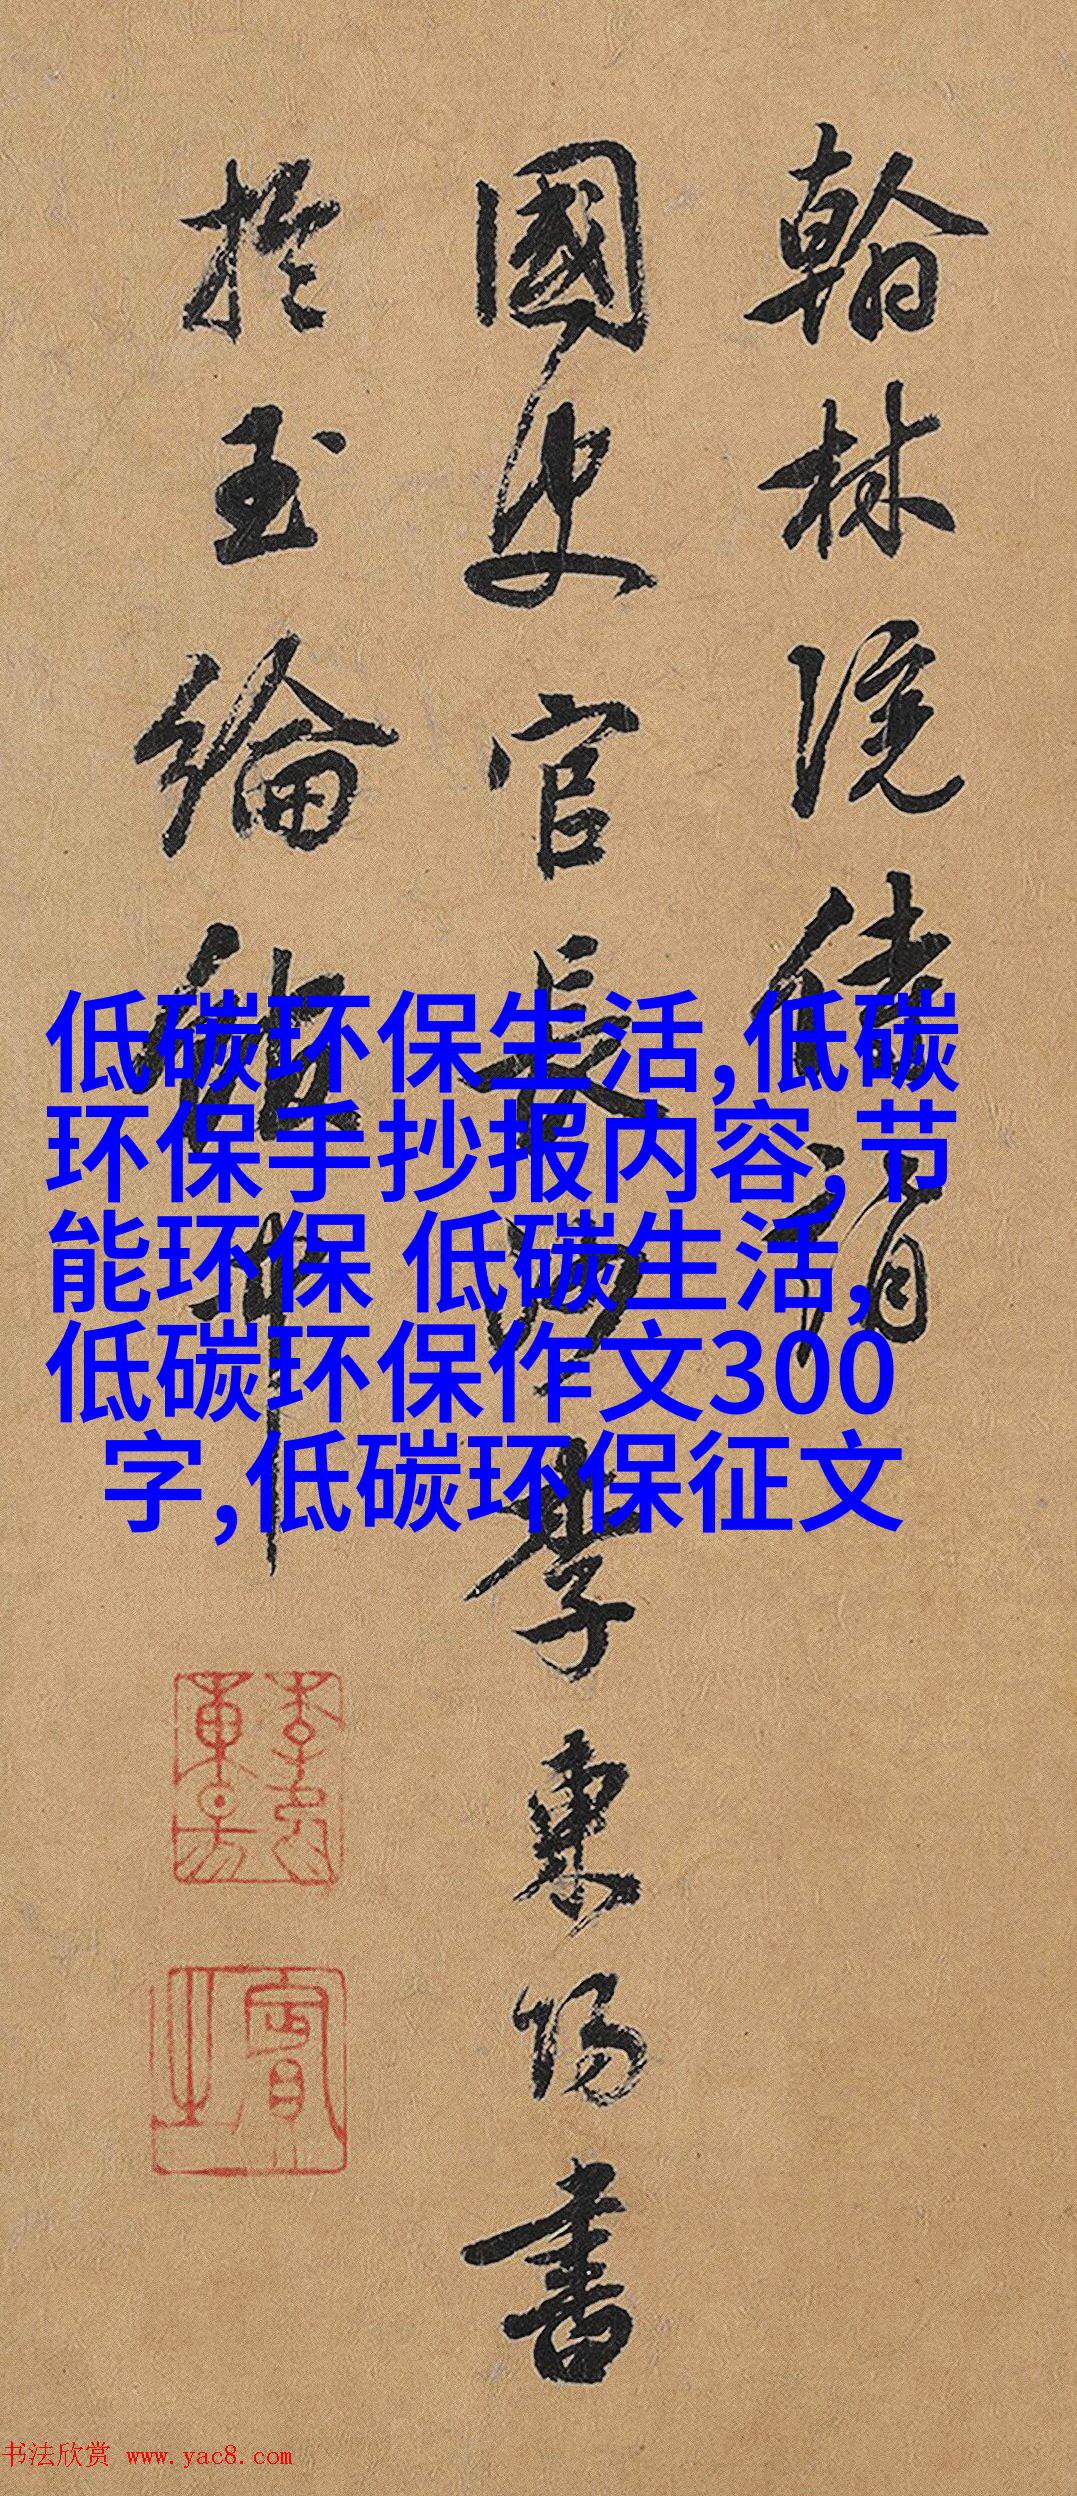 翰林院
國史官長沙李東陽書
於玉綸
低碳环保生活,低碳
环保手抄报内容,节
能环保 低碳生活,
低碳环保作文300
字,低碳环保征文
賓之
书法欣赏 www.yac8.com